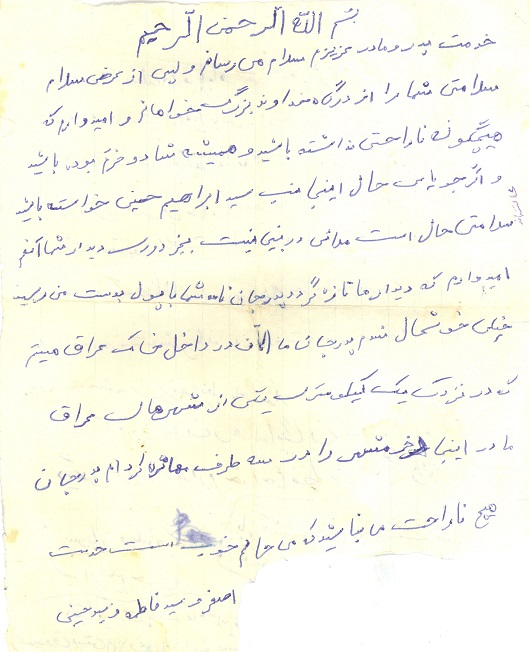 بسم الله الرحمن الرحیم
خدمت پدر و مادر عزیزم سلام می رسانم و پس از عرض سلام
سلامتی شما را از درگاه خداوند بزرگ میخواهانم و امیدوارم که
هیچگونه ناراحتی نداشته باشید و همیشه شاد و خرم بوده باشید
و اگر جویای حال اینجانب سید ابراهیم حسینی خواسته باشید
سلامتی حال است ملالی در بین نیست بجز دوری دیدار شما آنهم
امیدوارم که دیدارها تازه گردد پدرجان نامه شما با پول بدست من رسید
خیلی خوشحال شدم پدرجان ما الآن در داخل خاک عراق هستیم
که در نزدیک یک کیلومتری یکی از شهرهای عراق
ما در اینجا را در سه طرف محاصره کرده‌ام پدرجان
هیچ ناراحت ما نباشید که من حالم خوب است خدمت
اصغر و سید فاطمه و سید حسینی